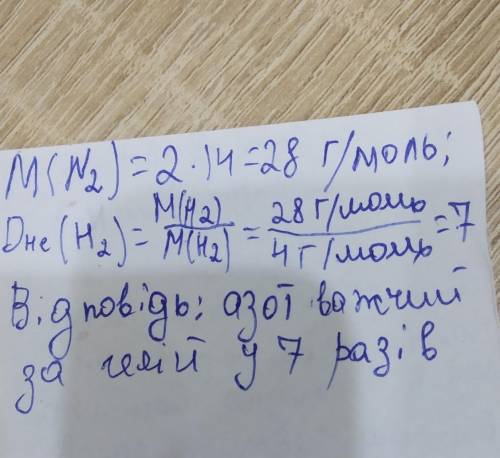 M(N₂)=2·14=28 г/моль;
Dне(H₂)=M(H₂)/M(H₂)=28г/моль/4г/моль=7
Відповідь: азот важчий
за гелій у 7 разів